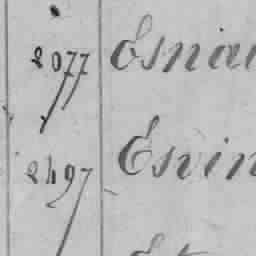 2077 Esnau
2497 Esvin